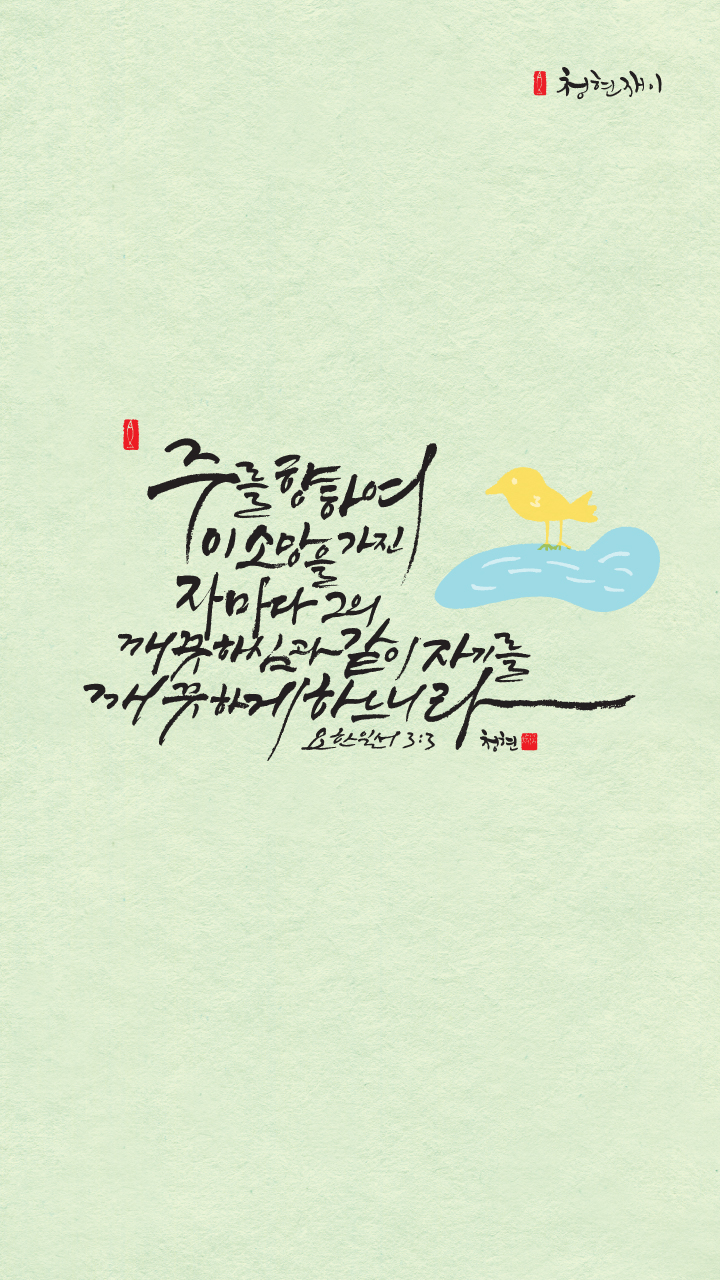 청현재이
주를 향하여
이 소망을 가진
자마다 그의
깨끗하심과 같이 자기를
깨끗하게 하느니라
요한일서 3:3 청현